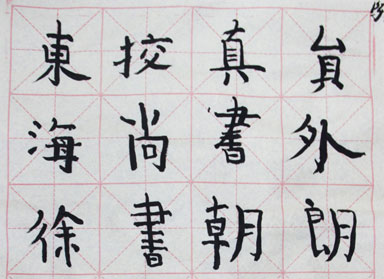 貟外朗
真書朝
挍尚書
東海徐